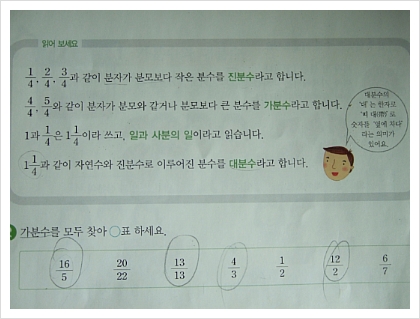 읽어 보세요
1/4, 2/4, 3/4과 같이 분자가 분모보다 작은 분수를 진분수라고 합니다.
4/4, 5/4와 같이 분자가 분모와 같거나 분모보다 큰 분수를 가분수라고 합니다.
1과 1/4은 1 1/4이라 쓰고, 일과 사분의 일이라고 읽습니다.
1 1/4과 같이 자연수와 진분수로 이루어진 분수를 대분수라고 합니다.
대분수의
'대'는 한자로
'띠 대(帶)'로
숫자를 '옆에 차다'
라는 의미가
있어요.
가분수를 모두 찾아 ○표 하세요.
16/5 20/22 13/13 4/3 1/2 12/2 6/7